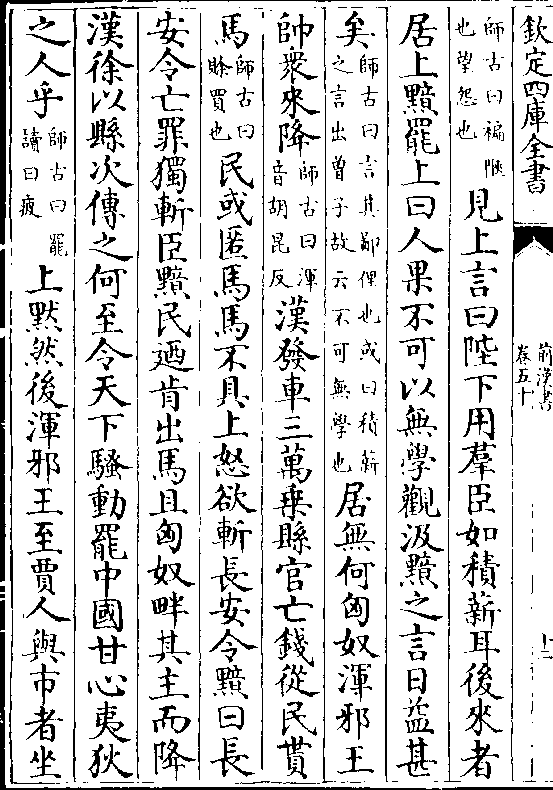 欽定四庫全書
前漢書
卷五十
十二
師古曰褊陿
也望怨也
見上言曰陛下用羣臣如積薪耳後來者
居上黯罷上曰人果不可以無學觀汲黯之言日益甚
矣
師古曰言其鄙俚也或曰積薪
之言出曾子故云不可無學也
居無何匈奴渾邪王
帥衆來降
師古曰渾
音胡昆反
漢發車三萬乗縣官亡錢從民貰
馬
師古曰
賖買也
民或匿馬馬不具上怒欲斬長安令黯曰長
安令亡罪獨斬臣黯民廼肯出馬且匈奴畔其主而降
漢徐以縣次傳之何至令天下騷動罷中國甘心夷狄
之人乎
師古曰罷
讀曰疲
上黙然後渾邪王至賈人與市者坐